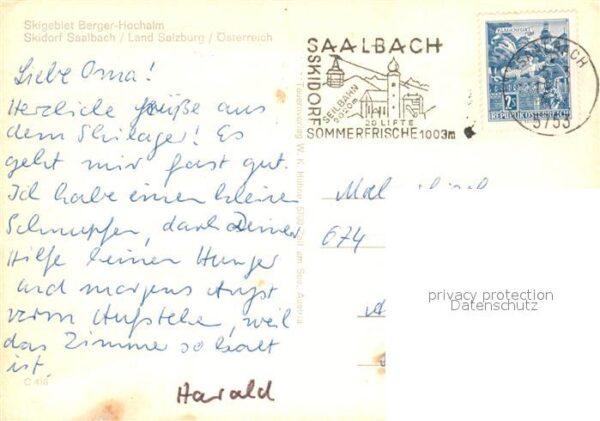 Skigebiet Berger-Hochalm
Skidorf Saalbach / Land Salzburg / Österreich
Liebe Oma!
Herzliche Grüße aus
dem Skilager! Es
geht mir fast gut.
Ich habe einen kleinen
Schnupfen, dank Deiner
Hilfe keinen Hunger
und morgens Angst
vorm Aufstehen, weil
das Zimmer so kalt
ist.
Harald
C 418
SAALBACH
SKIDORF
SEILBAHN
2020m
20 LIFTE
SOMMERFRISCHE 1003m
KLAGENFURT
2S
REPUBLIK ÖSTERREICH
SAALBACH
5753
674
privacy protection
Datenschutz